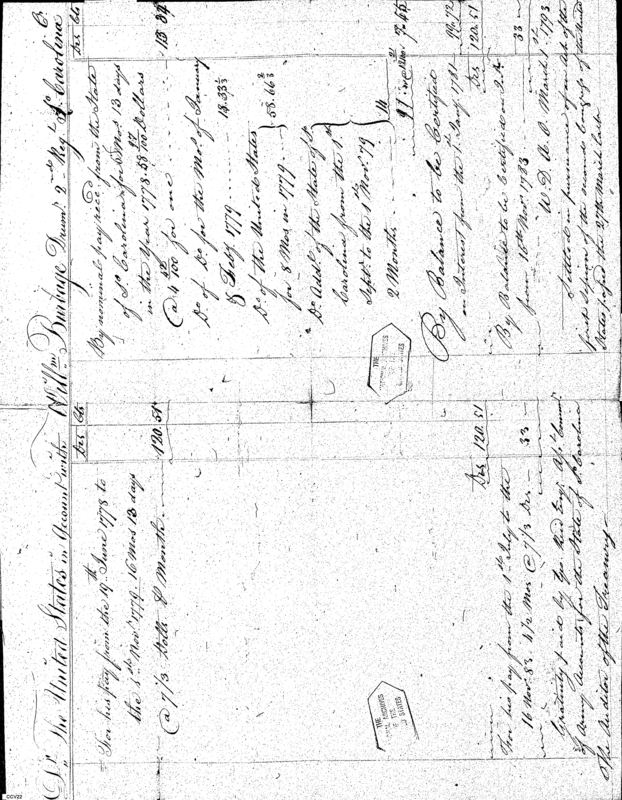 Dr. The United States in Account with Willm. Burbage Drumr. 2nd Regt. So. Carolina Cr.
Drs Cts
For his pay from the 19th June 1778 to
the 1st Novr. 1779. 16 Mos 13 days
@ 7 1/3 Dolls ⅌ Month 120.51
Drs 120.51
For his pay from the 1st July to the
16 Nov. 83. 4 1/2 Mos @ 7 1/3 Drs 33
Gratuity paid by Geo. Reid Esq. Commr.
of Army Accounts for the State of So. Carolina
The Auditor of the Treasury
Drs Cts
By nominal pay recd. from the State
of So. Carolina for Mos. 13 days
in the Year 1778. 59 97/100 Dollars
@ 4 42/100 for one 13 34
Do. of Do. for the Mos. of January
& Feby. 1779 18.33 1/3
Do. of the United States
for 8 Mos in 1779 58.66 2/3
Do. Addl. of the State of So.
Carolina from the 1st
Septr. to the 1st Novr. 79
2 Months 14
91
By Balance to be Certified
on Interest from the 1st Jany. 1781
Drs 120.51
By Balance to be Certified on Int.
from 16th Novr. 1783 33
W. D. A. O. March 1st 1793
Settled in pursuance of an Act of the
first Session of the second Congress of the United
States passed the 27th March last
THE
NATIONAL ARCHIVES
OF THE
UNITED STATES
THE
NATIONAL ARCHIVES
OF THE
UNITED STATES
CCV22